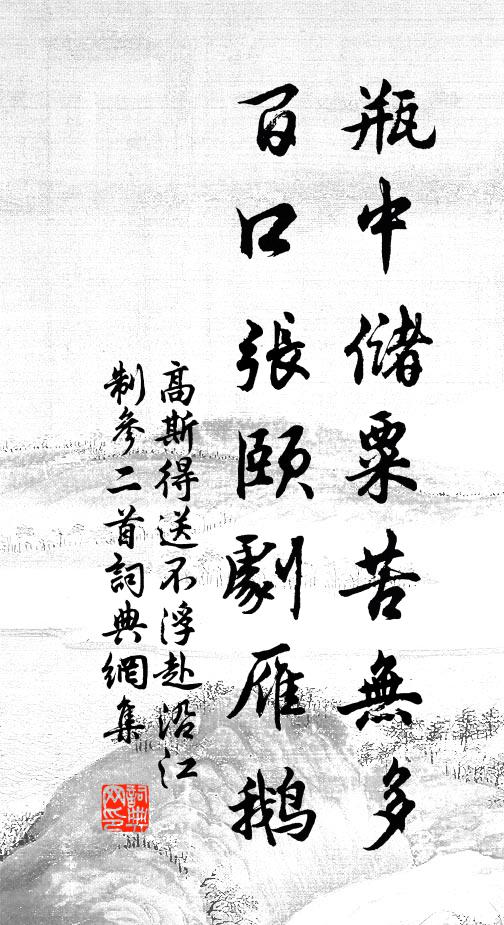 瓶中儲粟苦無多
百口張頤劇雁鵝
高斯得送不浮赴沿江
制參二首詞典網集